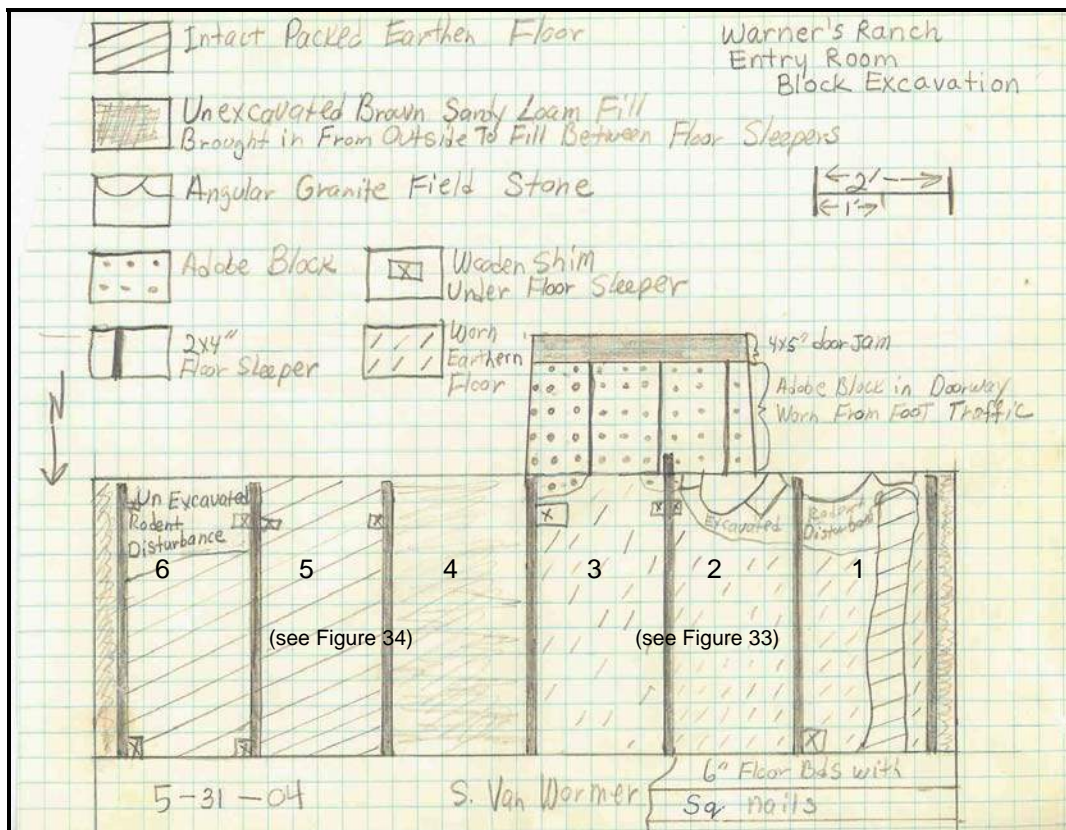 Intact Packed Earthen Floor
Warner's Ranch
Entry Room
Block Excavation
Unexcavated Brown Sandy Loam Fill
Brought in From Outside To Fill Between Floor Sleepers
2'
1'
Angular Granite Field Stone
Adobe Block
Wooden Shim
Under Floor Sleeper
2x4"
Floor Sleeper
Worn
Earthern
Floor
4x5" door Jam
Adobe Block in Doorway
Worn From Foot Traffic
N
Un Excavated
Rodent
Disturbance
Excavated
Rodent
6
5
4
3
2
1
(see Figure 34)
(see Figure 33)
5-31-04
S. Van Wormer
6" Floor Bds with
Sq nails